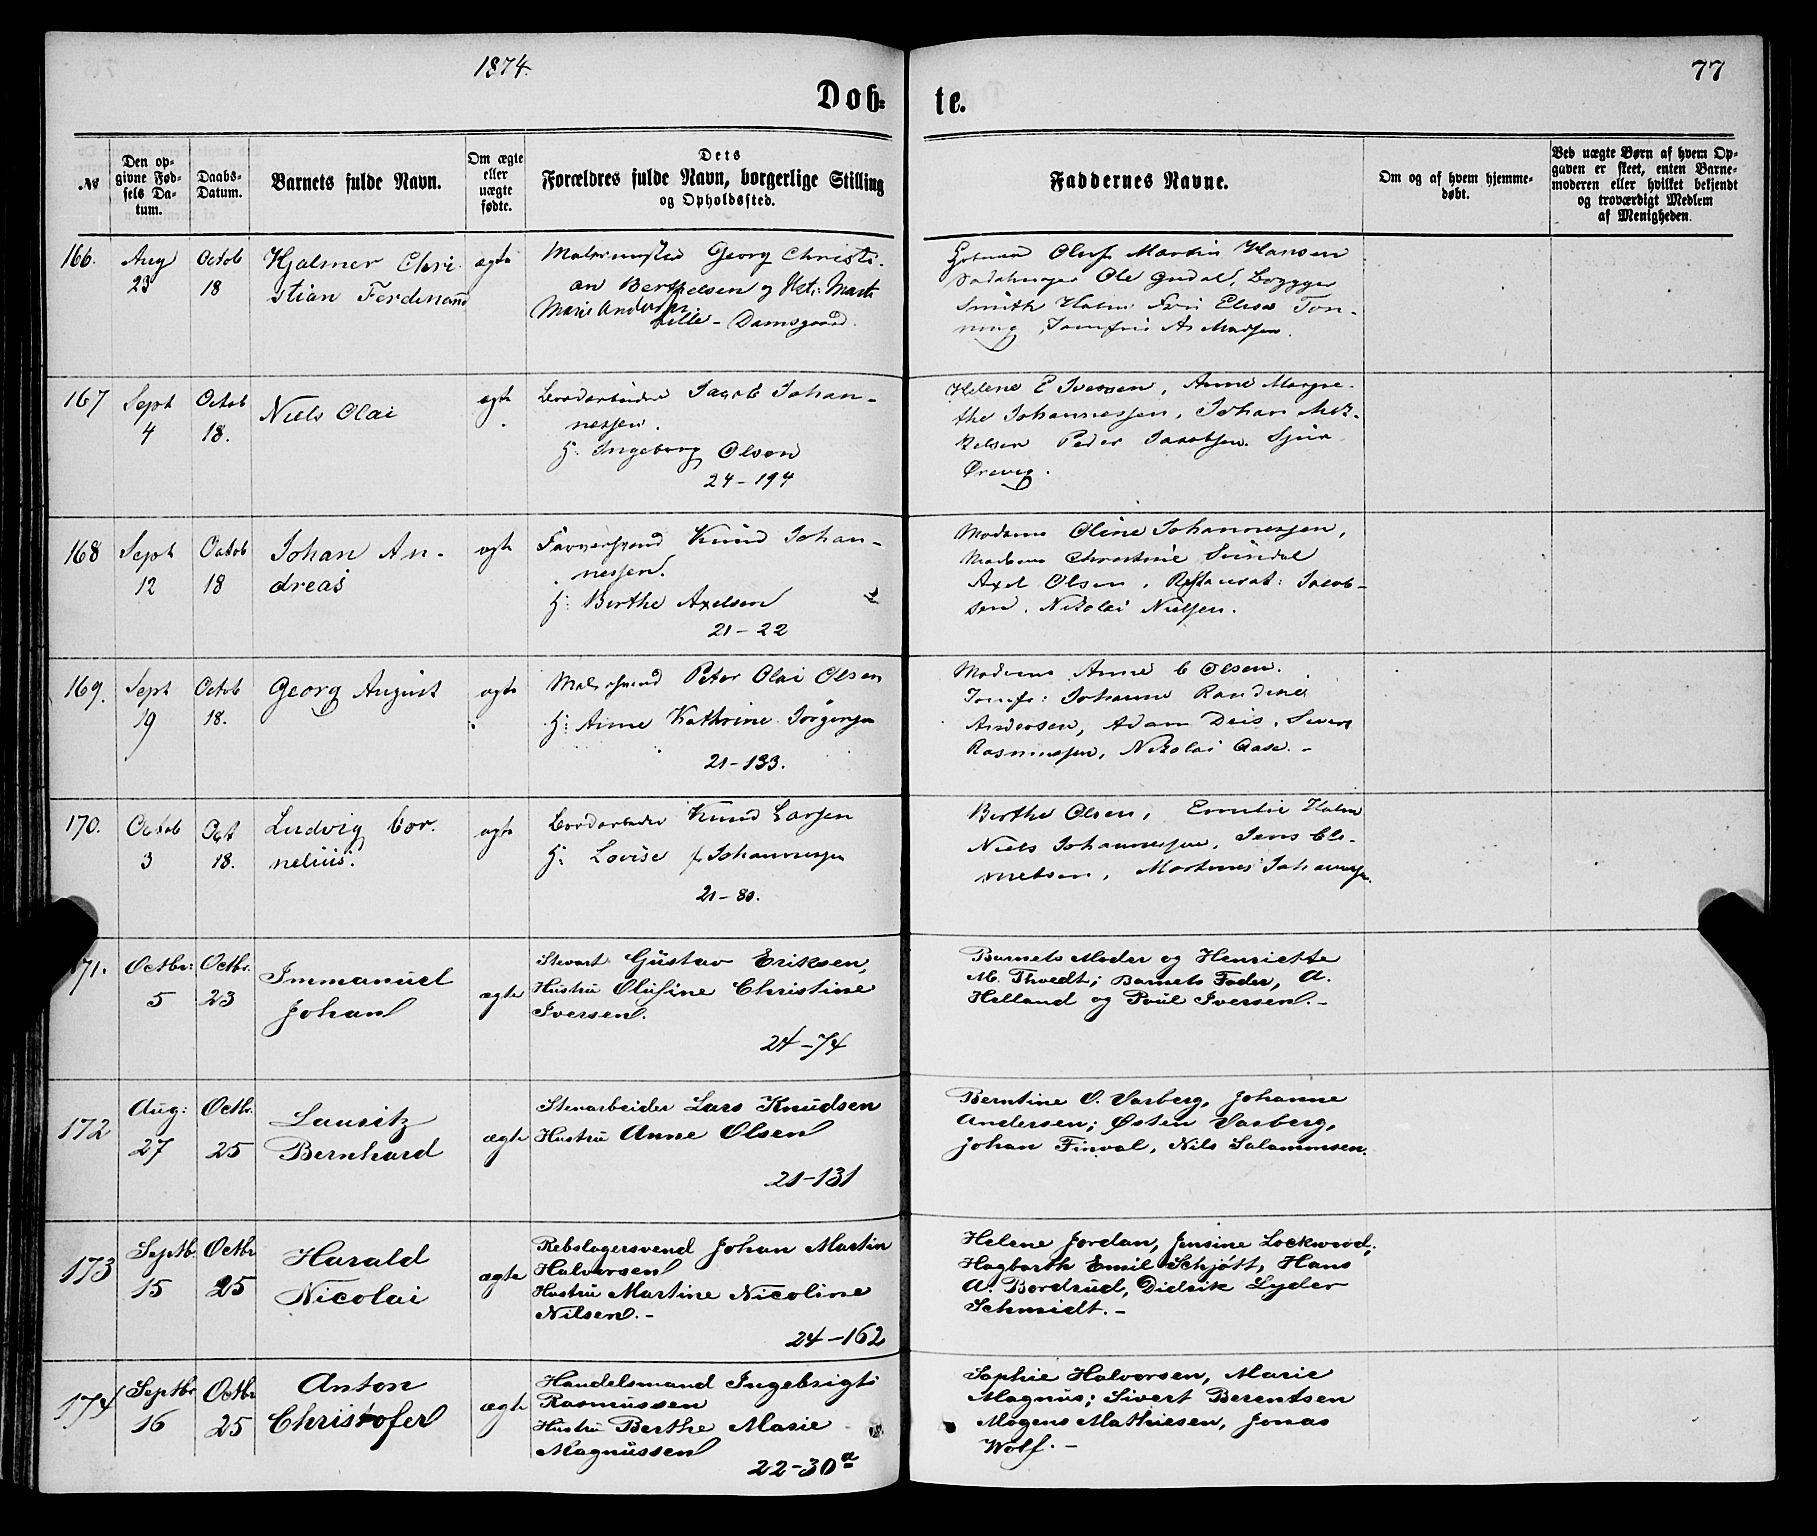 1874.
77
Døb- te.
№
Den opgivne Fødsels Datum.
Daabs-Datum.
Barnets fulde Navn.
Om ægte eller uægte fødte.
Dets Forældres fulde Navn, borgerlige Stilling og Opholdssted.
Faddernes Navne.
Om og af hvem hjemmedøbt.
Ved uægte Børn af hvem Opgaven er skeet, enten Barnemoderen eller hvilket bekjendt og troværdigt Medlem af Menigheden.
166. Aug 23 Octob 18
Hjalmer Chri
stian Ferdinand
ægte
Georg Christi-
an Berthelsen og
Marie Andersen
Lille-Damsgaard.
Oluf Martin Hansen
Ole
Smith
Elisa Ton-
ning
167 Sept 4 Octob 18.
Niels Olai
ægte
Jacob Johan-
nessen.
H: Ingeborg Olsen
24-194
Helene E Iversen, Anne Margre-
the Johannessen, Johan Mik-
kelsen Peder Jacobsen. Sjur
168 Sept 12 Octob 18
Johan An-
dreas
ægte
Knud Johan-
nessen.
H: Berthe Axelsen
21-22
Madame Oline Johannessen,
Madame Christine Sundal
Axel Olsen, Restaurat: Jacob-
sen, Nikolai Nielsen.
169. Sept 19 Octob 18.
Georg August
ægte
Malersvend Peter Olai Olsen
H: Anne Kathrine Jørgensen
21-133.
Madame Anne C Olsen.
Jomfr: Johanne Randine
Andersen, Adam Deis, Sivert
Rasmussen, Nikolai Aase. -
170. Octob 3 Oct 18.
Ludvig Cor-
nelius.
ægte
Knud Larsen
H: Lovise f Johannessen
21-80.
Berthe Olsen, Emilie Holm
Niels Johannessen, Jens Cle-
metsen, Martines Johannessen.
171. Octbr: 5 Octbr. 23
Immanuel
Johan
ægte
Stevart Gustav Eriksen,
Hustru Olufine Christine
Iversen.
24-74
Barnets Moder og Henriette
M. Thvedt; Barnets Fader, A.
Helland og Poul Iversen. -
172 Aug: 27 Octbr. 25
Lauritz
Bernhard
ægte
Stenarbeider Lars Knudsen
Hustru Anne Olsen
21-131
Berntine O. Varberg, Johanne
Andersen; Østen Varberg,
Johan Finval, Nils Salamonsen.
173 Septb. 15 Octbr 25
Harald
Nicolai
ægte
Rebslagersvend Johan Martin
Halvorsen
Hustru Martine Nicoline
Nilsen. -
24-162
Helene Jordan, Jensine Lockwood;
Hagbarth Emil Schjøtt, Hans
A. Bordsud, Didrik Lyder
Schmidt. -
174 Septbr 16 Octbr 25
Anton
Christofer
ægte
Handelsmand Ingebrigt
Rasmussen
Hustru Berthe Marie
Magnussen
22-30a
Sophie Halvorsen, Marie
Magnus; Sivert Berentsen
Mogens Mathiesen, Jonas
Wolf. -